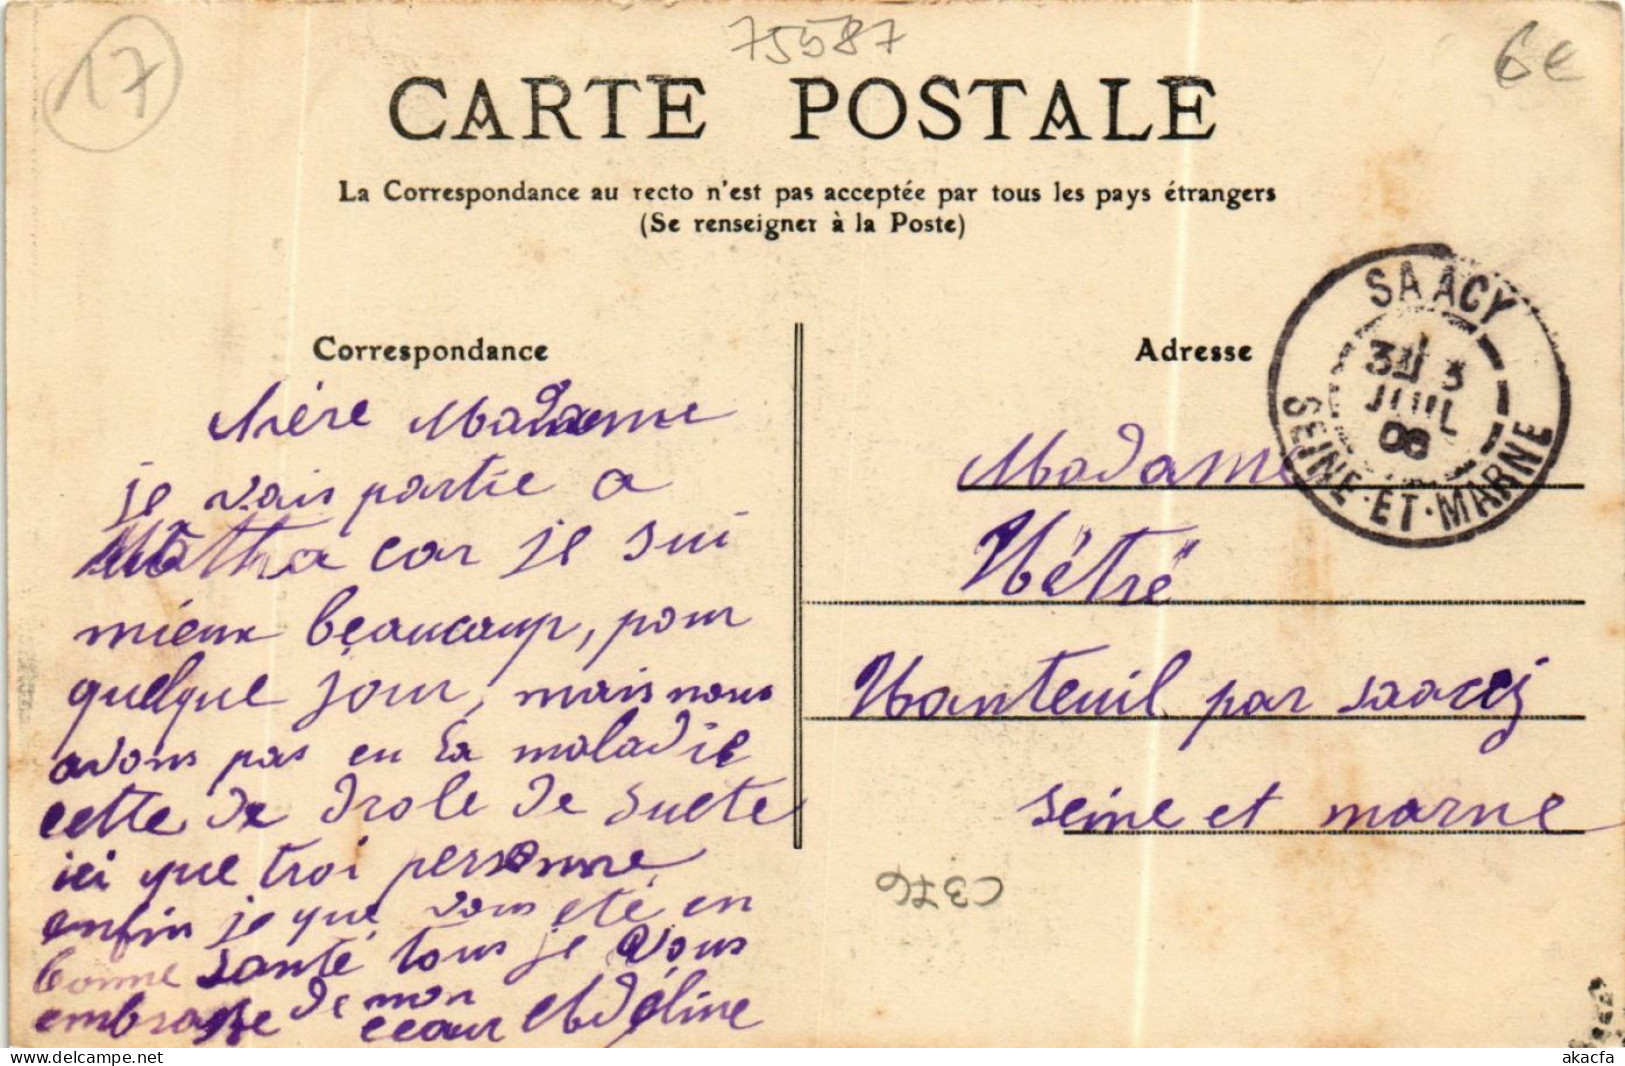 17
75587
6e
CARTE POSTALE
La Correspondance au recto n'est pas acceptée par tous les pays étrangers
(Se renseigner à la Poste)
SAACY
3 3
JUIL
SEINE-ET-MARNE
Correspondance
Adresse
chère Madame
je vais partie a
Matha car je sui
mieux beaucoup, pour
quelque jour, mais nous
avons pas eu la maladie
cette de drole de suete
ici que troi personne
enfin je que vous eté en
bonne santé tous je vous
embrasse de mon
ceaur Adéline
Madame
Hétré
Nanteuil par saacy
seine et marne
C376
akacfa